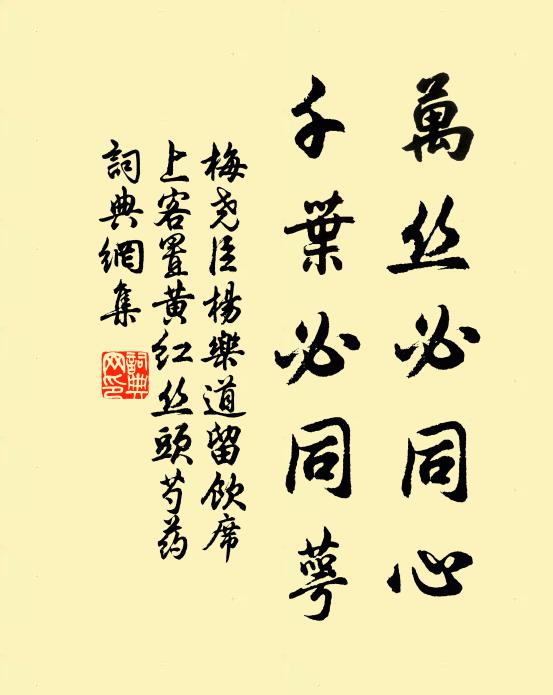 萬丝必同心
千葉必同萼
梅尧臣楊樂道留飲席
上客置黄红丝頭芍药
詞典網集
詞典网印